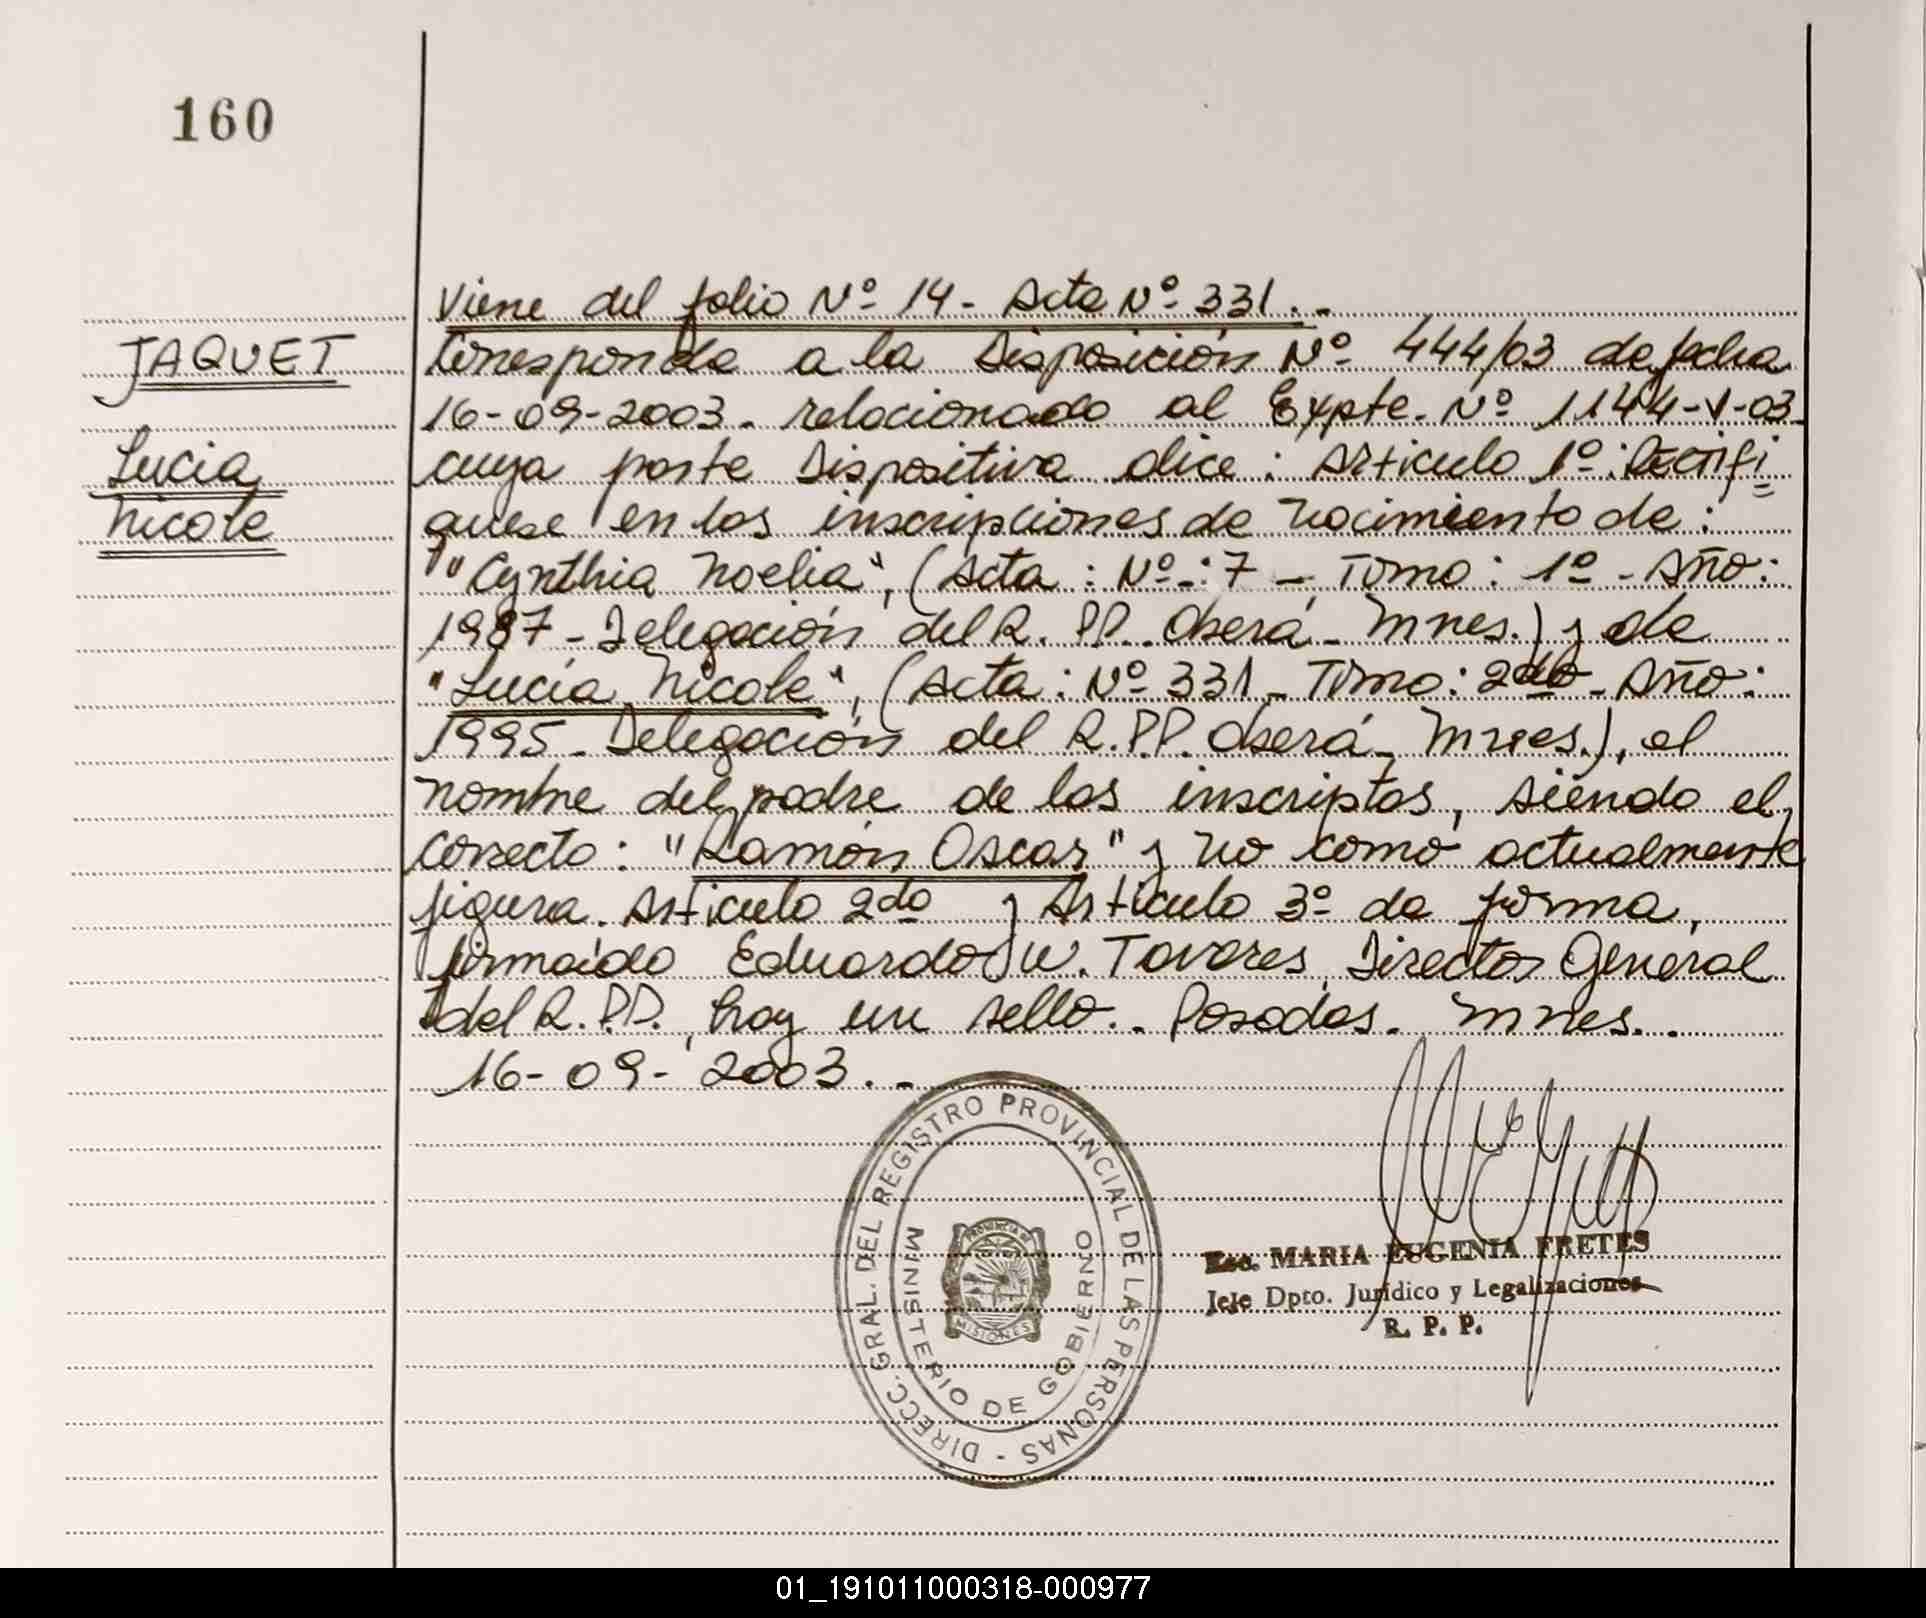 160
Viene del folio Nº 14 - Acta Nº 331 . -
JAQUET
Corresponde a la Disposición Nº 444/03 de fecha
16-09-2003. relacionado al Expte. Nº 1144-V-03
Lucia
cuya parte Dispositiva dice : Articulo 1º : Rectifi
Nicole
quese en las inscripciones de Nacimiento de :
"Cynthia Noelia", (Acta : Nº : 7 - Tomo : 1º - Año :
1987 - Delegación del R. PP. Oberá - Mnes.) y de
"Lucía Nicole", (Acta : Nº 331 - Tomo : 2do - Año :
1995 - Delegación del R.P.P. Oberá - Mnes.), el
nombre del padre de las inscriptas, siendo el
correcto : "Ramón Oscar" y no como actualmente
figura. Articulo 2do y Articulo 3º de forma,
firmaído Eduardo W. Tavares, Director General
del R.P.P., hay un sello. . Posadas. Mnes. .
16-09-2003. -
DIRECC. GRAL. DEL REGISTRO PROVINCIAL DE LAS PERSONAS -
MINISTERIO DE GOBIERNO
PROVINCIA DE
MISIONES
Esc. MARIA EUGENIA FRETES
Jefe Dpto. Jurídico y Legalizaciones
R. P. P.
01_191011000318-000977